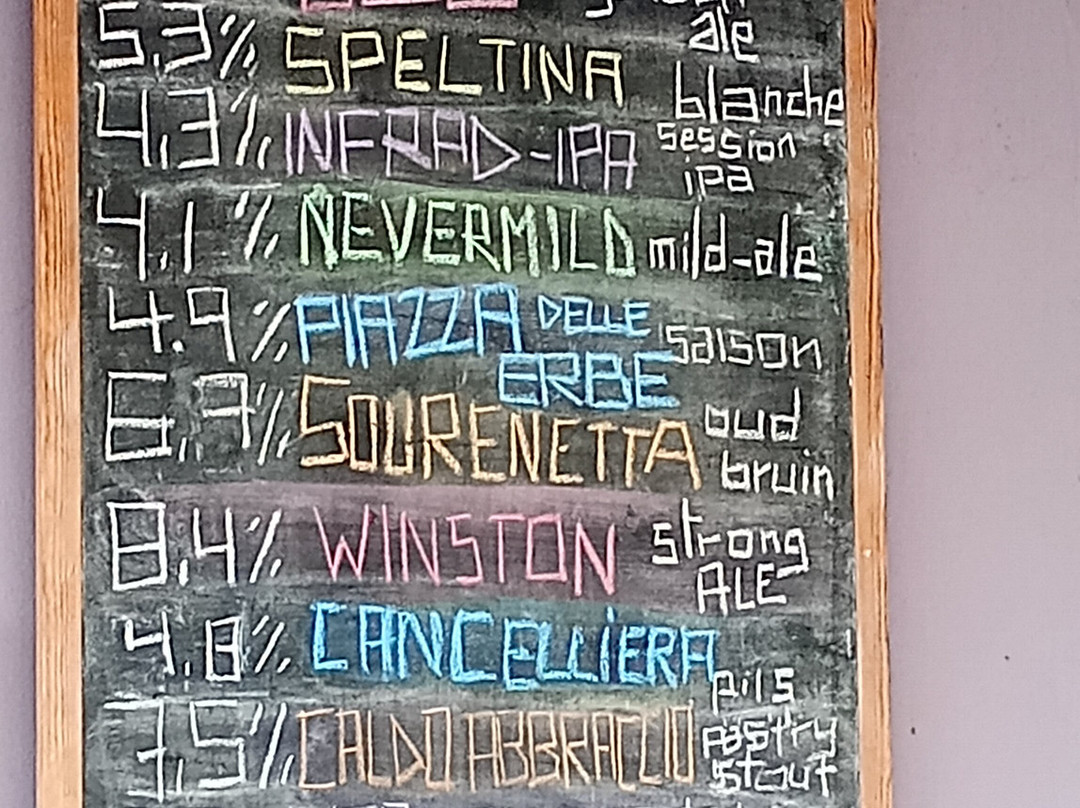 ale
5.3% SPELTINA blanche
4,3% INFRAD-IPA session ipa
4.1% NEVERMILD mild-ale
4.9% PIAZZA DELLE ERBE saison
SOURENETTA oud bruin
8,4% WINSTON strong ALE
4,8% CANCELLIERA pils
CALDO ABBRACCIO pastry stout